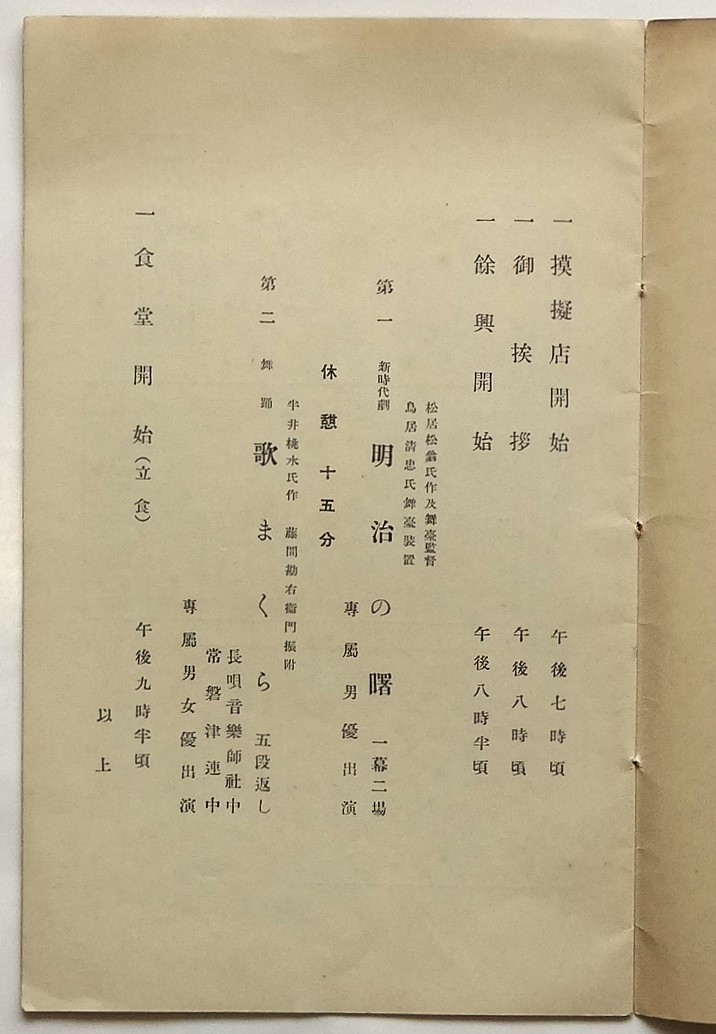 一 摸擬店開始 午後七時頃
一 御挨拶 午後八時頃
一 餘興開始 午後八時半頃
松居松翁氏作及舞臺監督
鳥居清忠氏舞臺裝置
第一 新時代劇 明治の曙 一幕二場
專屬男優出演
休憇十五分
半井桃水氏作 藤間勘右衞門振附
第二 舞踊 歌まくら 五段返し
長唄音樂師社中
常磐津連中
專屬男女優出演
一 食堂開始(立食) 午後九時半頃
以上